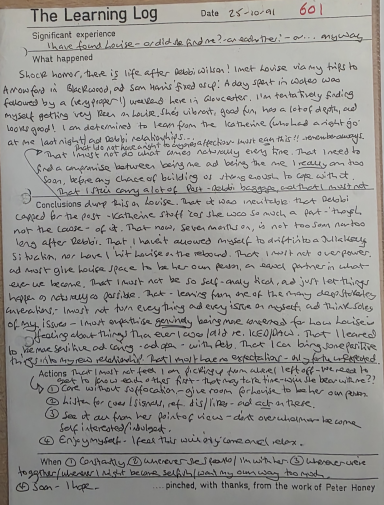 The Learning Log Date 25-10-91 601
Significant experience
I have found Louise - or did she find me? - or each other! - or... anyway
What happened
Shock horror, there is life after Debbi Wilson! I met Louise via my trips to
in Blackwood, and Sam Harris fixed us up. A day spent in Wales was
followed by a (very proper!) weekend here in Gloucester. I'm tentatively finding
myself getting very keen on Louise. She's vibrant, good fun, has a lot of depth, and
looks good! I am determined to learn from the Katherine (who had a right go
at me last night) and Debbi relationships...
That I do not have a right to anyone's affection - must earn this!! remember always
That I must not do what comes naturally every time. That I need to
find a compromise between being me and being the me I really am too
soon, before any chance of building up strong enough to cope with it.
That I still carry a lot of Post-Debbi baggage, and that I must not
Conclusions dump this on Louise. That it was inevitable that Debbi
copped for the post-Katherine stuff 'cos she was so much a part - though
not the cause - of it. That now, seven months on, is not too soon nor too
long after Debbi. That I haven't allowed myself to drift into a
situation, nor have I hit Louise on the rebound. That I must not overpower,
and must give Louise space to be her own person, an equal partner in what-
ever we become. That I must not be so self-analytical, and just let things
happen as naturally as possible. That - learning from one of the many
- I must not turn everything and every issue on myself, and think solely
of my issues - I must empathise genuinely being more concerned for how Louise is
feeling about things than ever I was (and is ICEO/DRW). That I learned
to be more sensitive and caring - and open - with Debbi. That I can bring some positive
things into my new relationship. That I must have no expectations -
Actions That I must not feel I am picking up from where I left off - we need to
get to know each other first - that may take time - will she bear with me??
① Care without suffocation - give room for Louise to be her own person
② Listen for cues/signals, ref. dis/likes - and act on these.
③ See it all from her point of view - don't overwhelm or become
self interested/indulgent.
④ Enjoy myself. I feel this will only come and relax.
When ① Constantly, ② whenever she speaks/I'm with her ③ Whenever we're
together/whenever I might become selfish/want my own way too much.
④ Soon - I hope. ....pinched, with thanks, from the work of Peter Honey